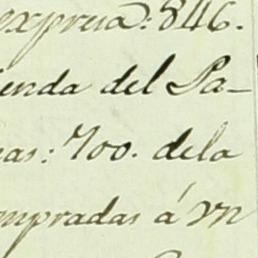 expresa: 846.
enda del Pa-
as: 700. dela
mpradas á vn